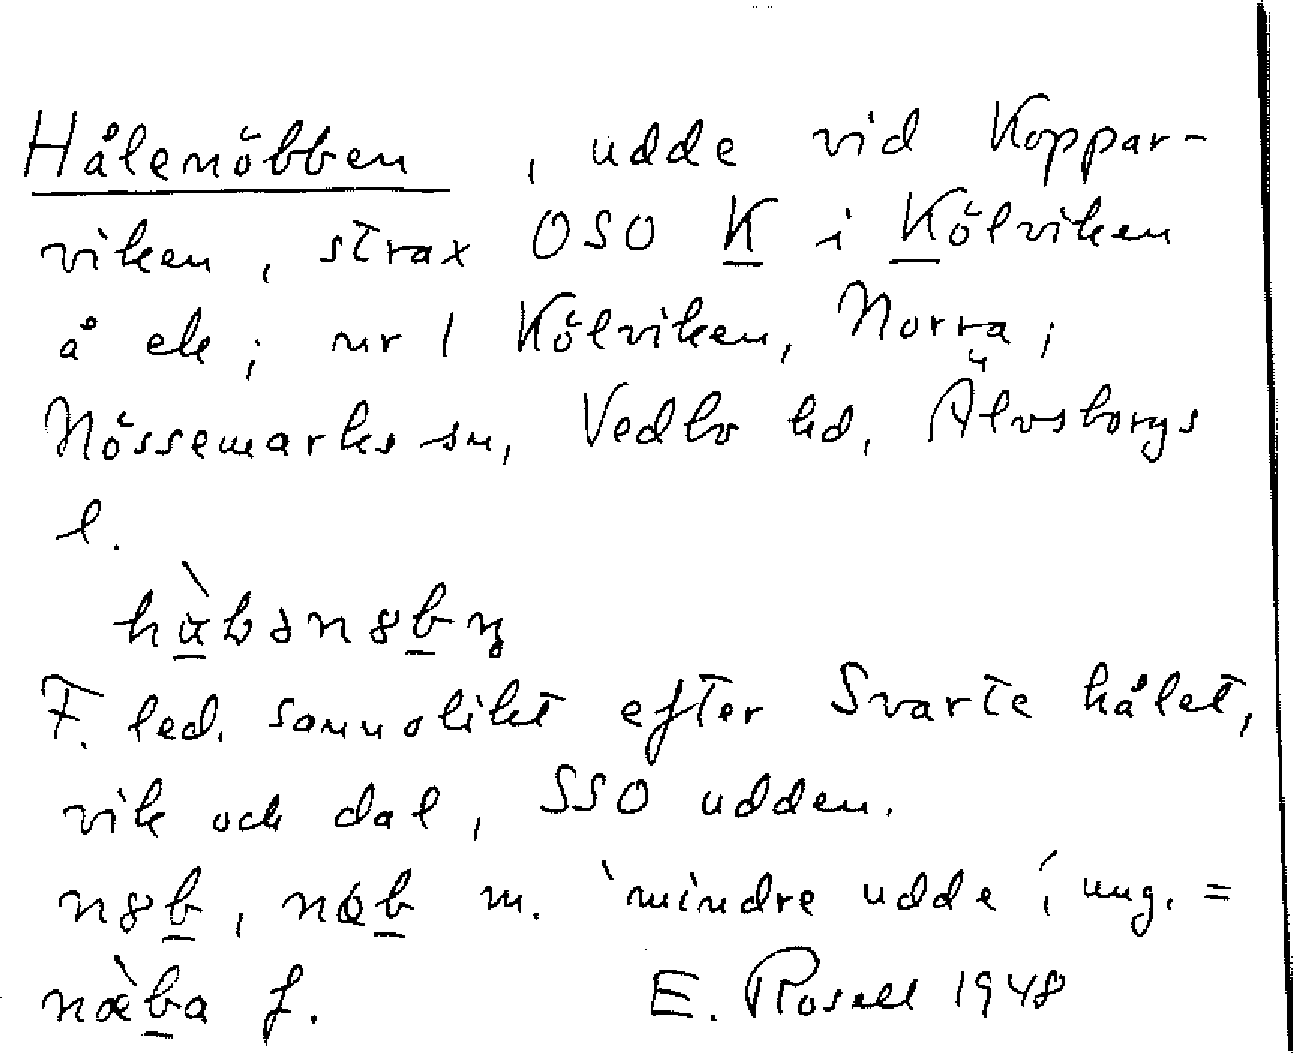 Hålenöbben , udde vid Koppar-
viken, strax OSO K i Kölviken
å ek; nr 1 Kölviken, Norra;
Nössemarks sn, Vedbo hd, Älvsborgs
l.
F. led. sannolikt efter Svarte hålet,
vik och dal, SSO udden.
n8b, nøb m. 'mindre udde', ung. =
næ̀ba f. E. Rosell 1948